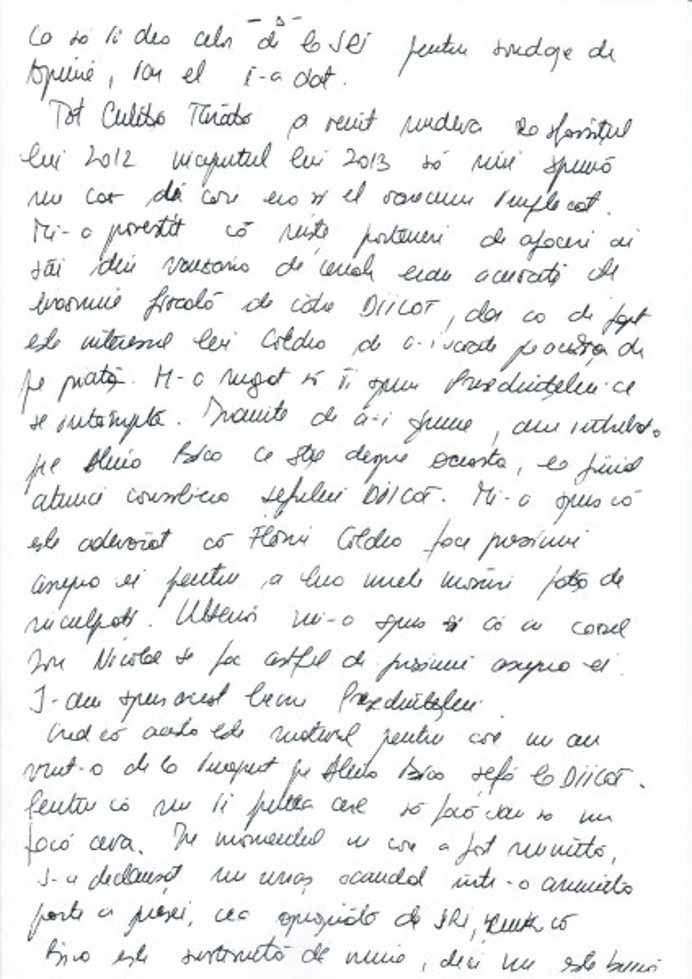 - 5 -
ca să îi dea celor de la SRI pentru sondaje de
opinie, iar el i-a dat.
Tot Culiță Tărâță a venit undeva la sfârșitul
lui 2012 începutul lui 2013 să mine spună
un caz de care era și el oarecum implicat.
Mi-a povestit că niște parteneri de afaceri ai
săi din vânzarea de cereale erau acuzați de
evaziune fiscală de către DIICOT, dar că de fapt
este interesul lui Coldea de a-i scoate pe aceștia de
pe piață. M-a rugat să îi spun Președintelui ce
se întâmplă. Înainte de a-i spune, am întrebat-o
pe Alina Bica ce știe despre aceasta, ea fiind
atunci consiliera șefului DIICOT. Mi-a spus că
este adevărat că Florin Coldea face presiuni
asupra ei pentru a lua unele măsuri față de
inculpați. Ulterior mi-a spus și că în cazul
Ion Nicolae se fac astfel de presiuni asupra ei.
I-am spus acest lucru Președintelui.
Cred că acesta este motivul pentru care nu au
vrut-o de la început pe Alina Bica șefă la DIICOT.
Pentru că nu îi putea cere să facă sau să nu
facă ceva. În momentul în care a fost numită,
s-a declanșat un uriaș scandal într-o anumită
parte a presei, cea apropiată de SRI, că
Bica este susținută de mine, deci nu este bună